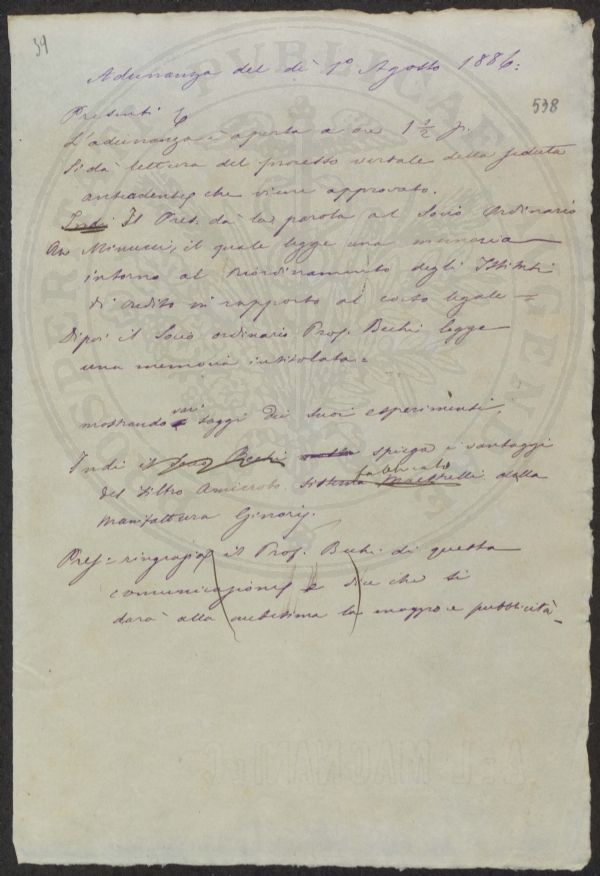 39
Adunanza del dì 1º Agosto 1886.
538
Presenti 6
L'adunanza è aperta a ore 1 1/2 p.
Si dà lettura del processo verbale della seduta
antecedente che viene approvato.
Indi Il Pres. dà la parola al Socio Ordinario
Av. Minucci, il quale legge una memoria
intorno al riordinamento degli Istituti
di credito in rapporto al corso legale =
Dipoi il Socio ordinario Prof. Bechi legge
una memoria intitolata =
mostrando vari saggi dei suoi esperimenti.
Indi il Bechi spiega i vantaggi
del Filtro Amicrobo sistema fabbricato dalla
Manifattura Ginori.
Pres. ringrazia il Prof. Bechi di questa
comunicazione e dice che si
darà alla medesima la maggiore pubblicità_